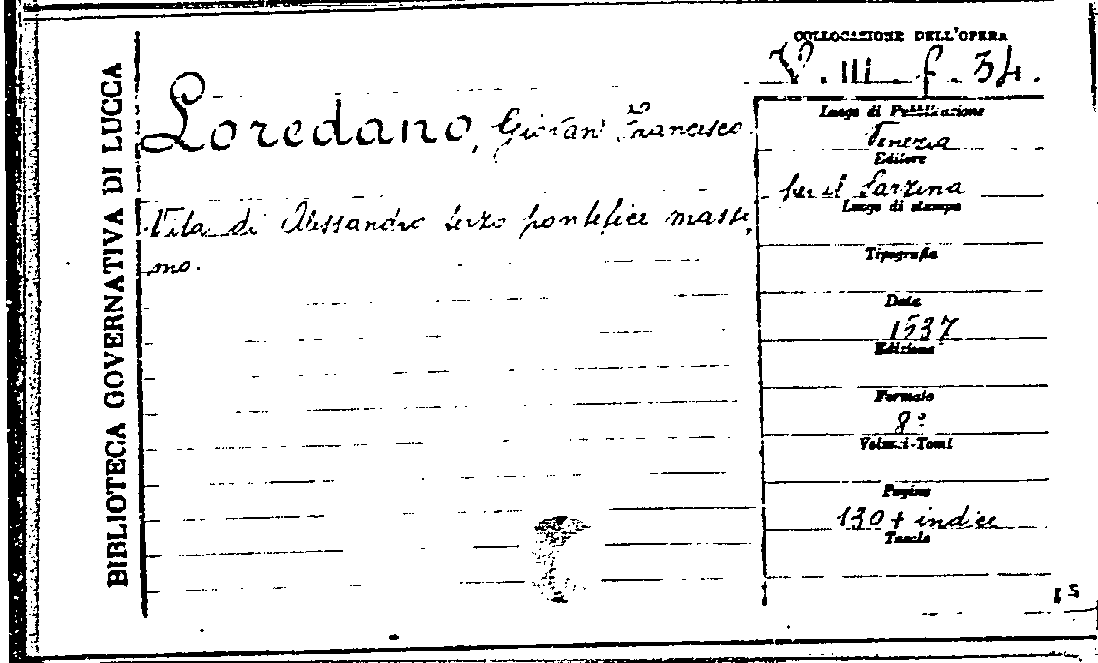 BIBLIOTECA GOVERNATIVA DI LUCCA
COLLOCAZIONE DELL'OPERA
V. III. f. 34.
Loredano, Giovani Francesco
Vita di Alessandro terzo pontefice massi,
mo.
Luogo di Pubblicazione
Venezia
Editore
per il Sarzina
Luogo di stampa
Tipografia
Data
1637
Edizione
Formato
8º
Volumi-Tomi
Pagine
130 + indice
Tavole